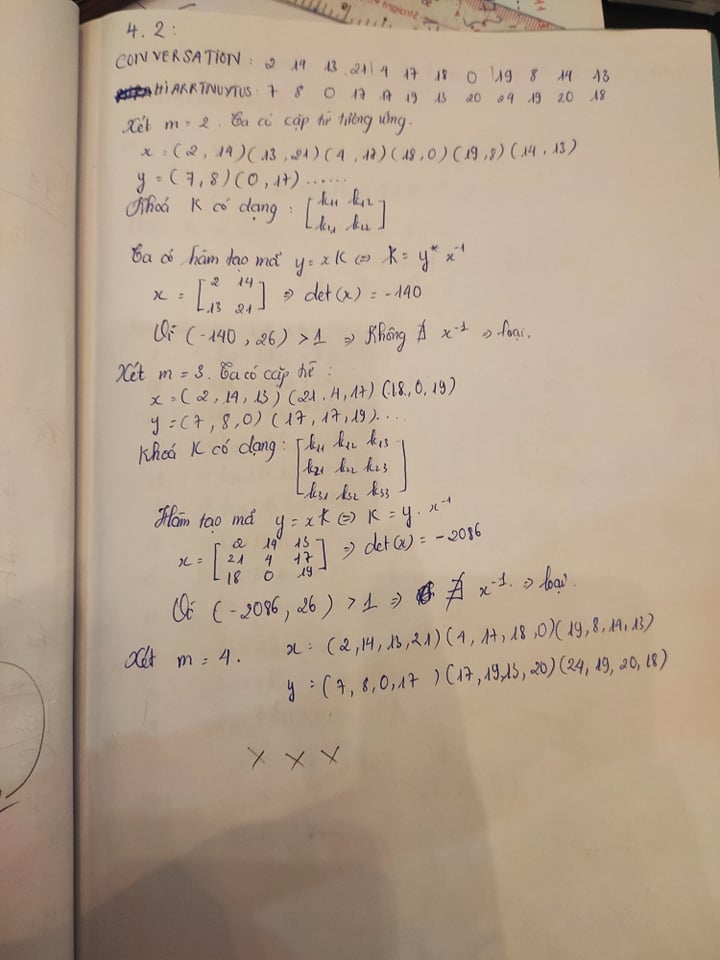 4.2:
CONVERSATION: 2 14 13 21 4 17 18 0 19 8 14 13
HIARRTNUYTUS: 7 8 0 17 17 19 13 20 24 19 20 18
Xét m = 2. Ta có cặp từ tương ứng.
x = (2, 14) (13, 21) (4, 17) (18, 0) (19, 8) (14, 13)
y = (7, 8) (0, 17) ......
Khoá K có dạng: [k11 k12
k21 k22]
Ta có hàm tạo mã y = xK ⇔ K = y* x⁻¹
x = [2 14
13 21] ⇒ det(x) = -140
Vì (-140, 26) > 1 ⇒ Không ∃ x⁻¹ ⇒ loại.
Xét m = 3. Ta có cặp từ:
x = (2, 14, 13) (21, 4, 17) (18, 0, 19)
y = (7, 8, 0) (17, 17, 19). ..
Khoá K có dạng: [k11 k12 k13
k21 k22 k23
k31 k32 k33]
Hàm tạo mã y = xK ⇔ K = y. x⁻¹
x = [2 14 13
21 4 17
18 0 19] ⇒ det(x) = -2086
Vì (-2086, 26) > 1 ⇒ ∄ x⁻¹. ⇒ loại.
Xét m = 4. x = (2, 14, 13, 21) (4, 17, 18, 0) (19, 8, 14, 13)
y = (7, 8, 0, 17) (17, 19, 13, 20) (24, 19, 20, 18)
X X X